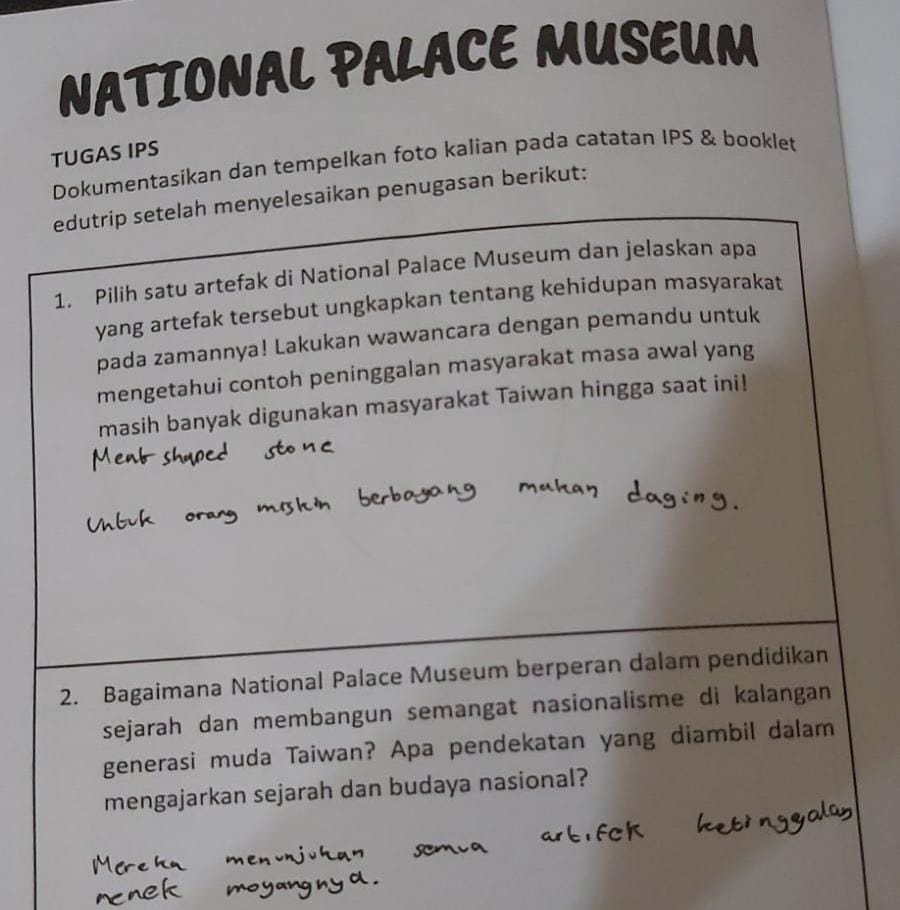 NATIONAL PALACE MUSEUM
TUGAS IPS
Dokumentasikan dan tempelkan foto kalian pada catatan IPS & booklet
edutrip setelah menyelesaikan penugasan berikut:
1. Pilih satu artefak di National Palace Museum dan jelaskan apa
yang artefak tersebut ungkapkan tentang kehidupan masyarakat
pada zamannya! Lakukan wawancara dengan pemandu untuk
mengetahui contoh peninggalan masyarakat masa awal yang
masih banyak digunakan masyarakat Taiwan hingga saat ini!
Meat shaped stone
Untuk orang miskin berbayang makan daging.
2. Bagaimana National Palace Museum berperan dalam pendidikan
sejarah dan membangun semangat nasionalisme di kalangan
generasi muda Taiwan? Apa pendekatan yang diambil dalam
mengajarkan sejarah dan budaya nasional?
Mereka menunjukan semua artifek ketinggalan
nenek moyangnya.